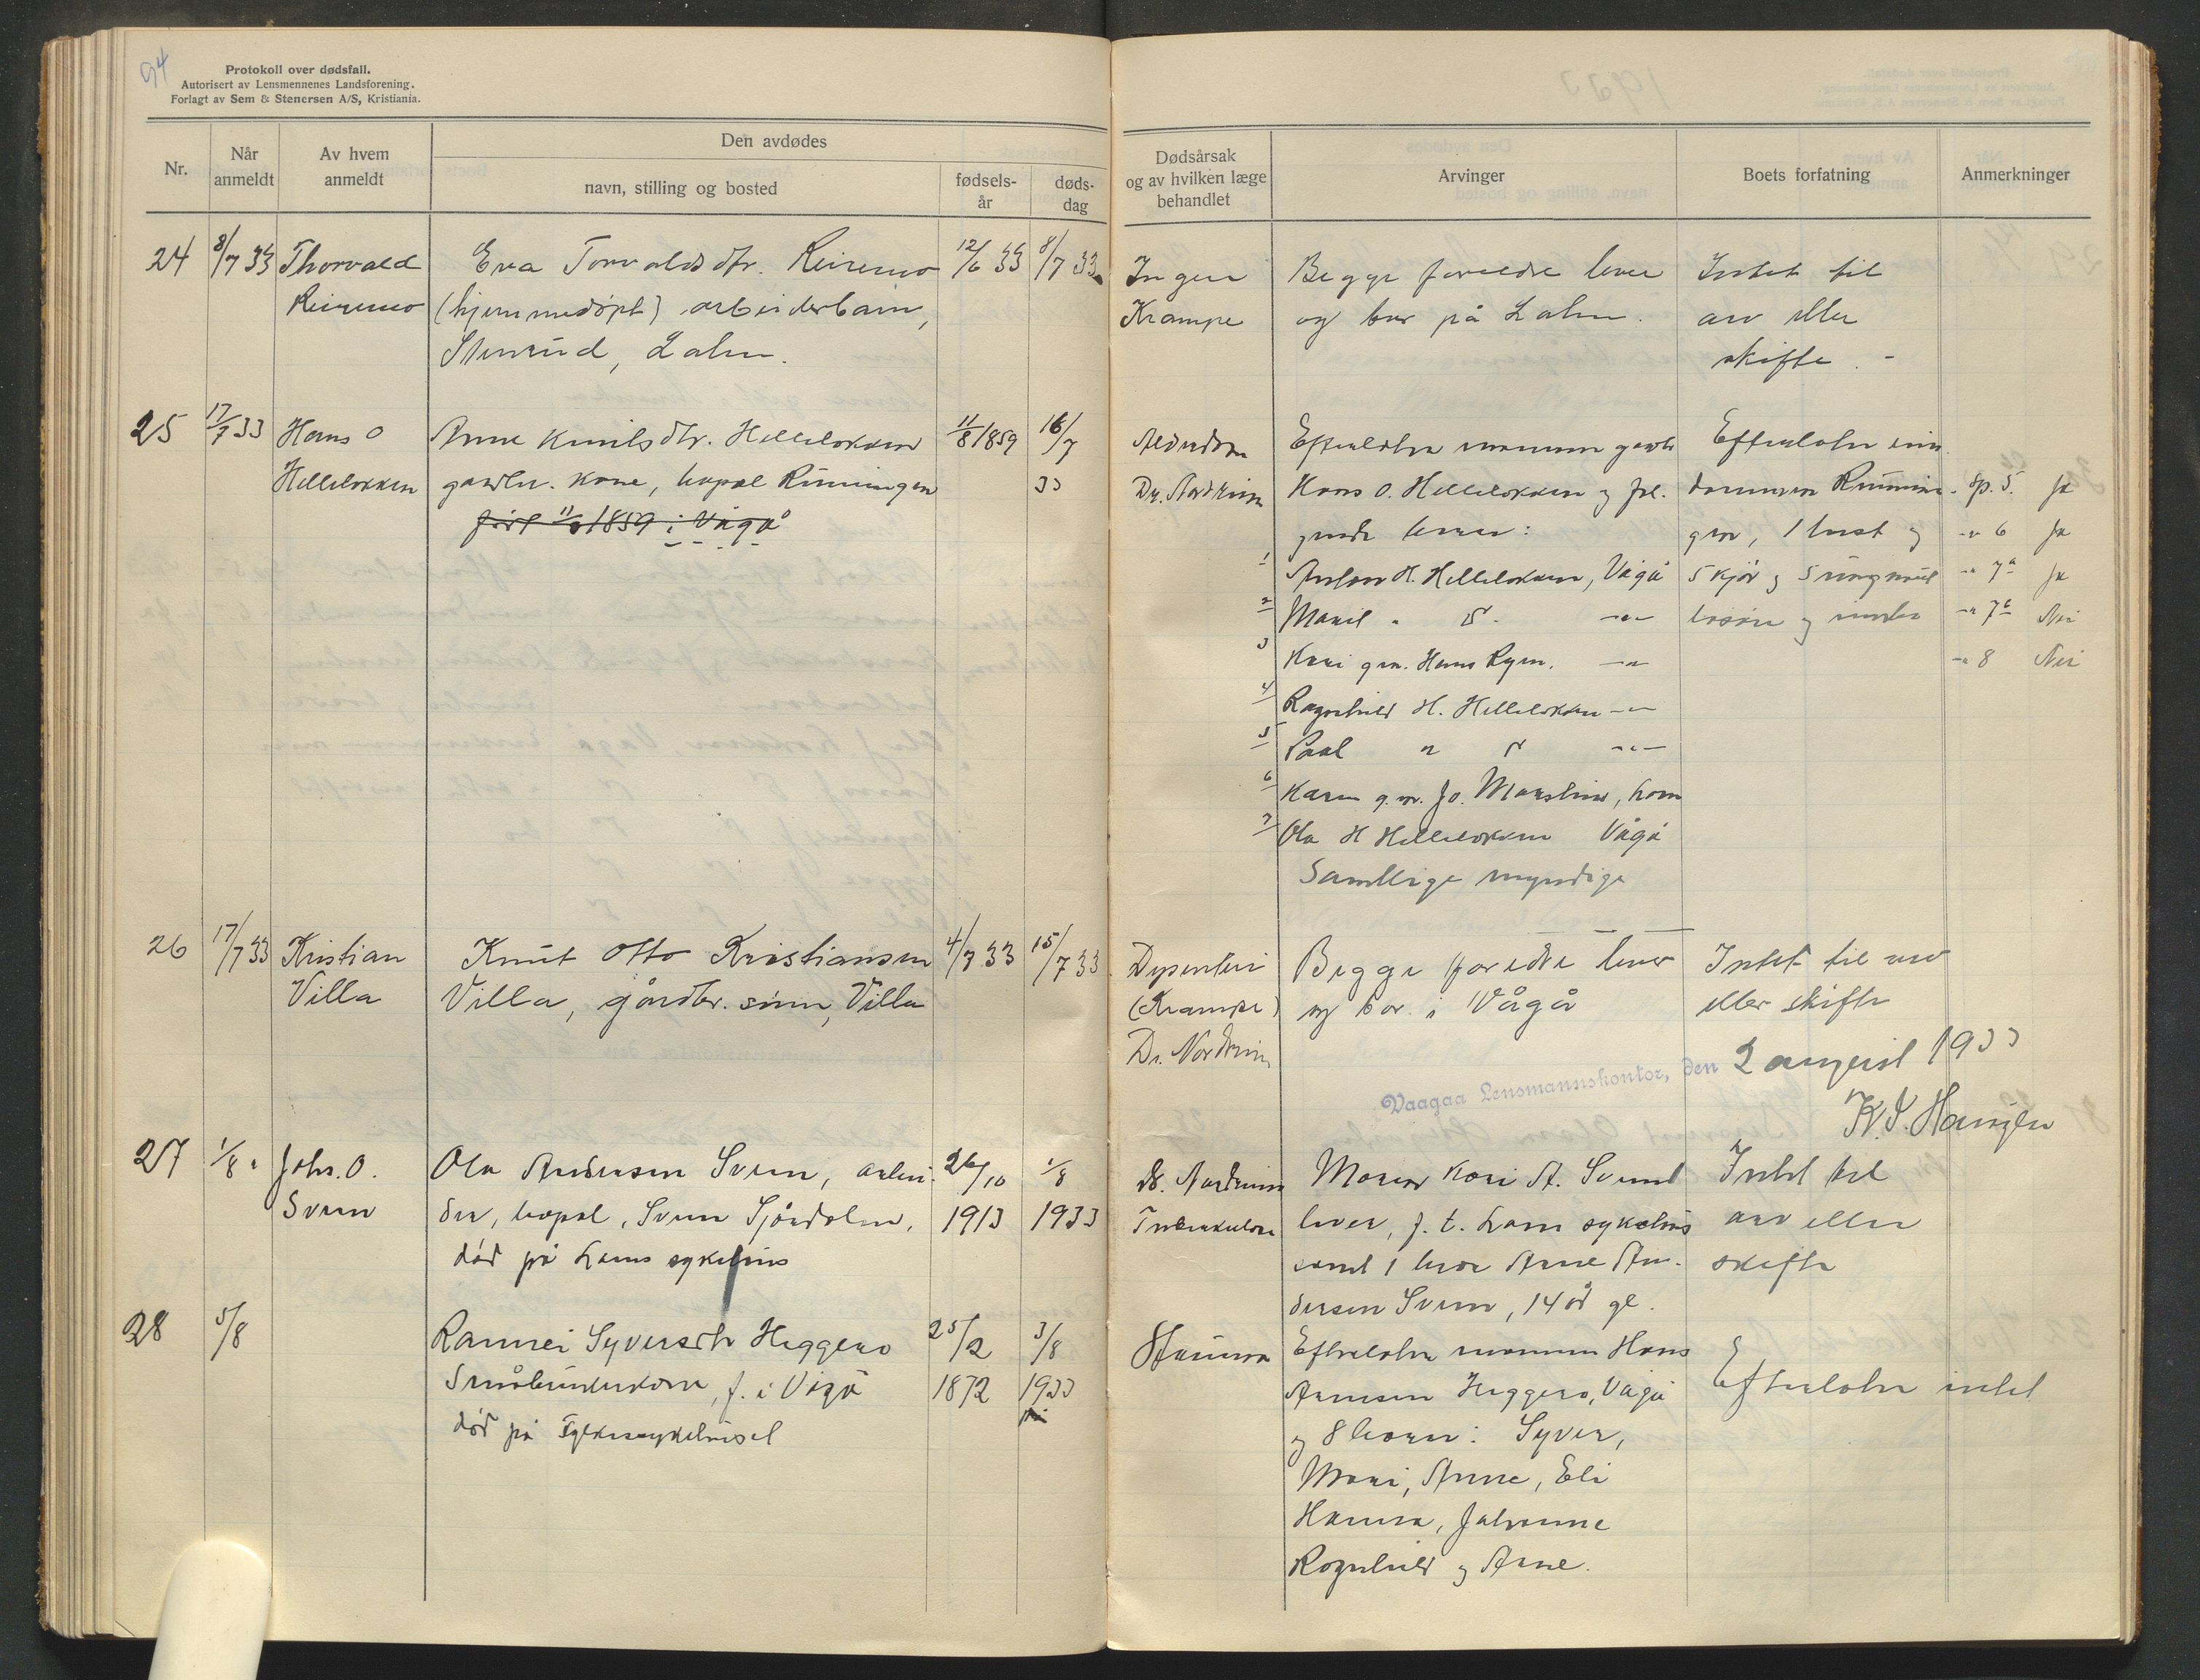 94
Protokoll over dødsfall.
Autorisert av Lensmennenes Landsforening.
Forlagt av Sem & Stenersen A/S, Kristiania.
Nr.
Når anmeldt
Av hvem anmeldt
Den avdødes
navn, stilling og bosted
fødsels-år
døds-dag
Dødsårsak og av hvilken læge behandlet
Arvinger
Boets forfatning
Anmerkninger
24
8/7 33
Thorvald
Reiremo
Eva Torvaldsdtr. Reiremo
(hjemmedøpt) arbeiderbarn,
Stenrud, Lalm.
12/6 33
8/7 33
Ingen
Krampe
Begge foreldre lever
og bor på Lalm.
Intet til
arv eller
skifte. -
25
17/7 33
Hans O
Hellelokken
Anne Knutsdtr. Hellelokken
gardbr. kone, bopæl Rusningen
født 11/8 1859 i Vågå
11/8 1859
16/7
33
Alderdom
Dr. Nordrum
Efterlater mannen gardb
Hans O. Hellelokken og føl-
gende barn:
1 H. Hellelokken, Vågå
2 Marit " d -"-
3 Kari g.m. Hans Ryen, -"-
4 Ragnhild H. Hellelokken -"-
5 Paal " d -"-
6 Karen g.m. Jo. Marstein, Lom
7 Ola H Hellelokken Vågå
Samtlige myndige
Efterlater eien
dommen
gen, 1 hest og
5 kjør og 5 ungnaut
bosøre og
Sp. 5. Ja
-"- 6 Ja
-"- 7a Ja
-"- 7b Nei
-"- 8 Nei
26
17/7 33
Kristian
Villa
Knut Otto Kristiansen
Villa, gårdbr. sønn, Villa
4/7 33
15/7 33
Dysenteri
(Krampe)
Dr. Nordrum
Begge foreldre lever
og bor i Vågå
Intet til arv
eller skifte
Vaagaa Lensmannskontor, den 2 august 1933
27
1/8
Johs. O.
Sveen
Ola Andersen Sveen, arbei-
der, bopæl, Sveen Sjårdalen,
død på Loms sykehus
26/10
1913
1/8
1933
Dr. Nordrum
Tuberkulose
Moren Kari A. Sveen
lever, f. t. Lom sykehus
samt 1 bror Arne An-
dersen Sveen, 14 år gl.
Intet til
arv eller
skifte
28
5/8
Rannei Syversdtr Heggero
Småbrukerkone, f. i Vågå
død på Fylkessykehuset
25/2
1872
3/8
1933
Efterlater mannen Hans
Arnesen Heggero, Vågå
og 8 barn: Syver,
Mari, Anne, Eli
Hanna, Johanne
Ragnhild og Arne.
Efterlater intet